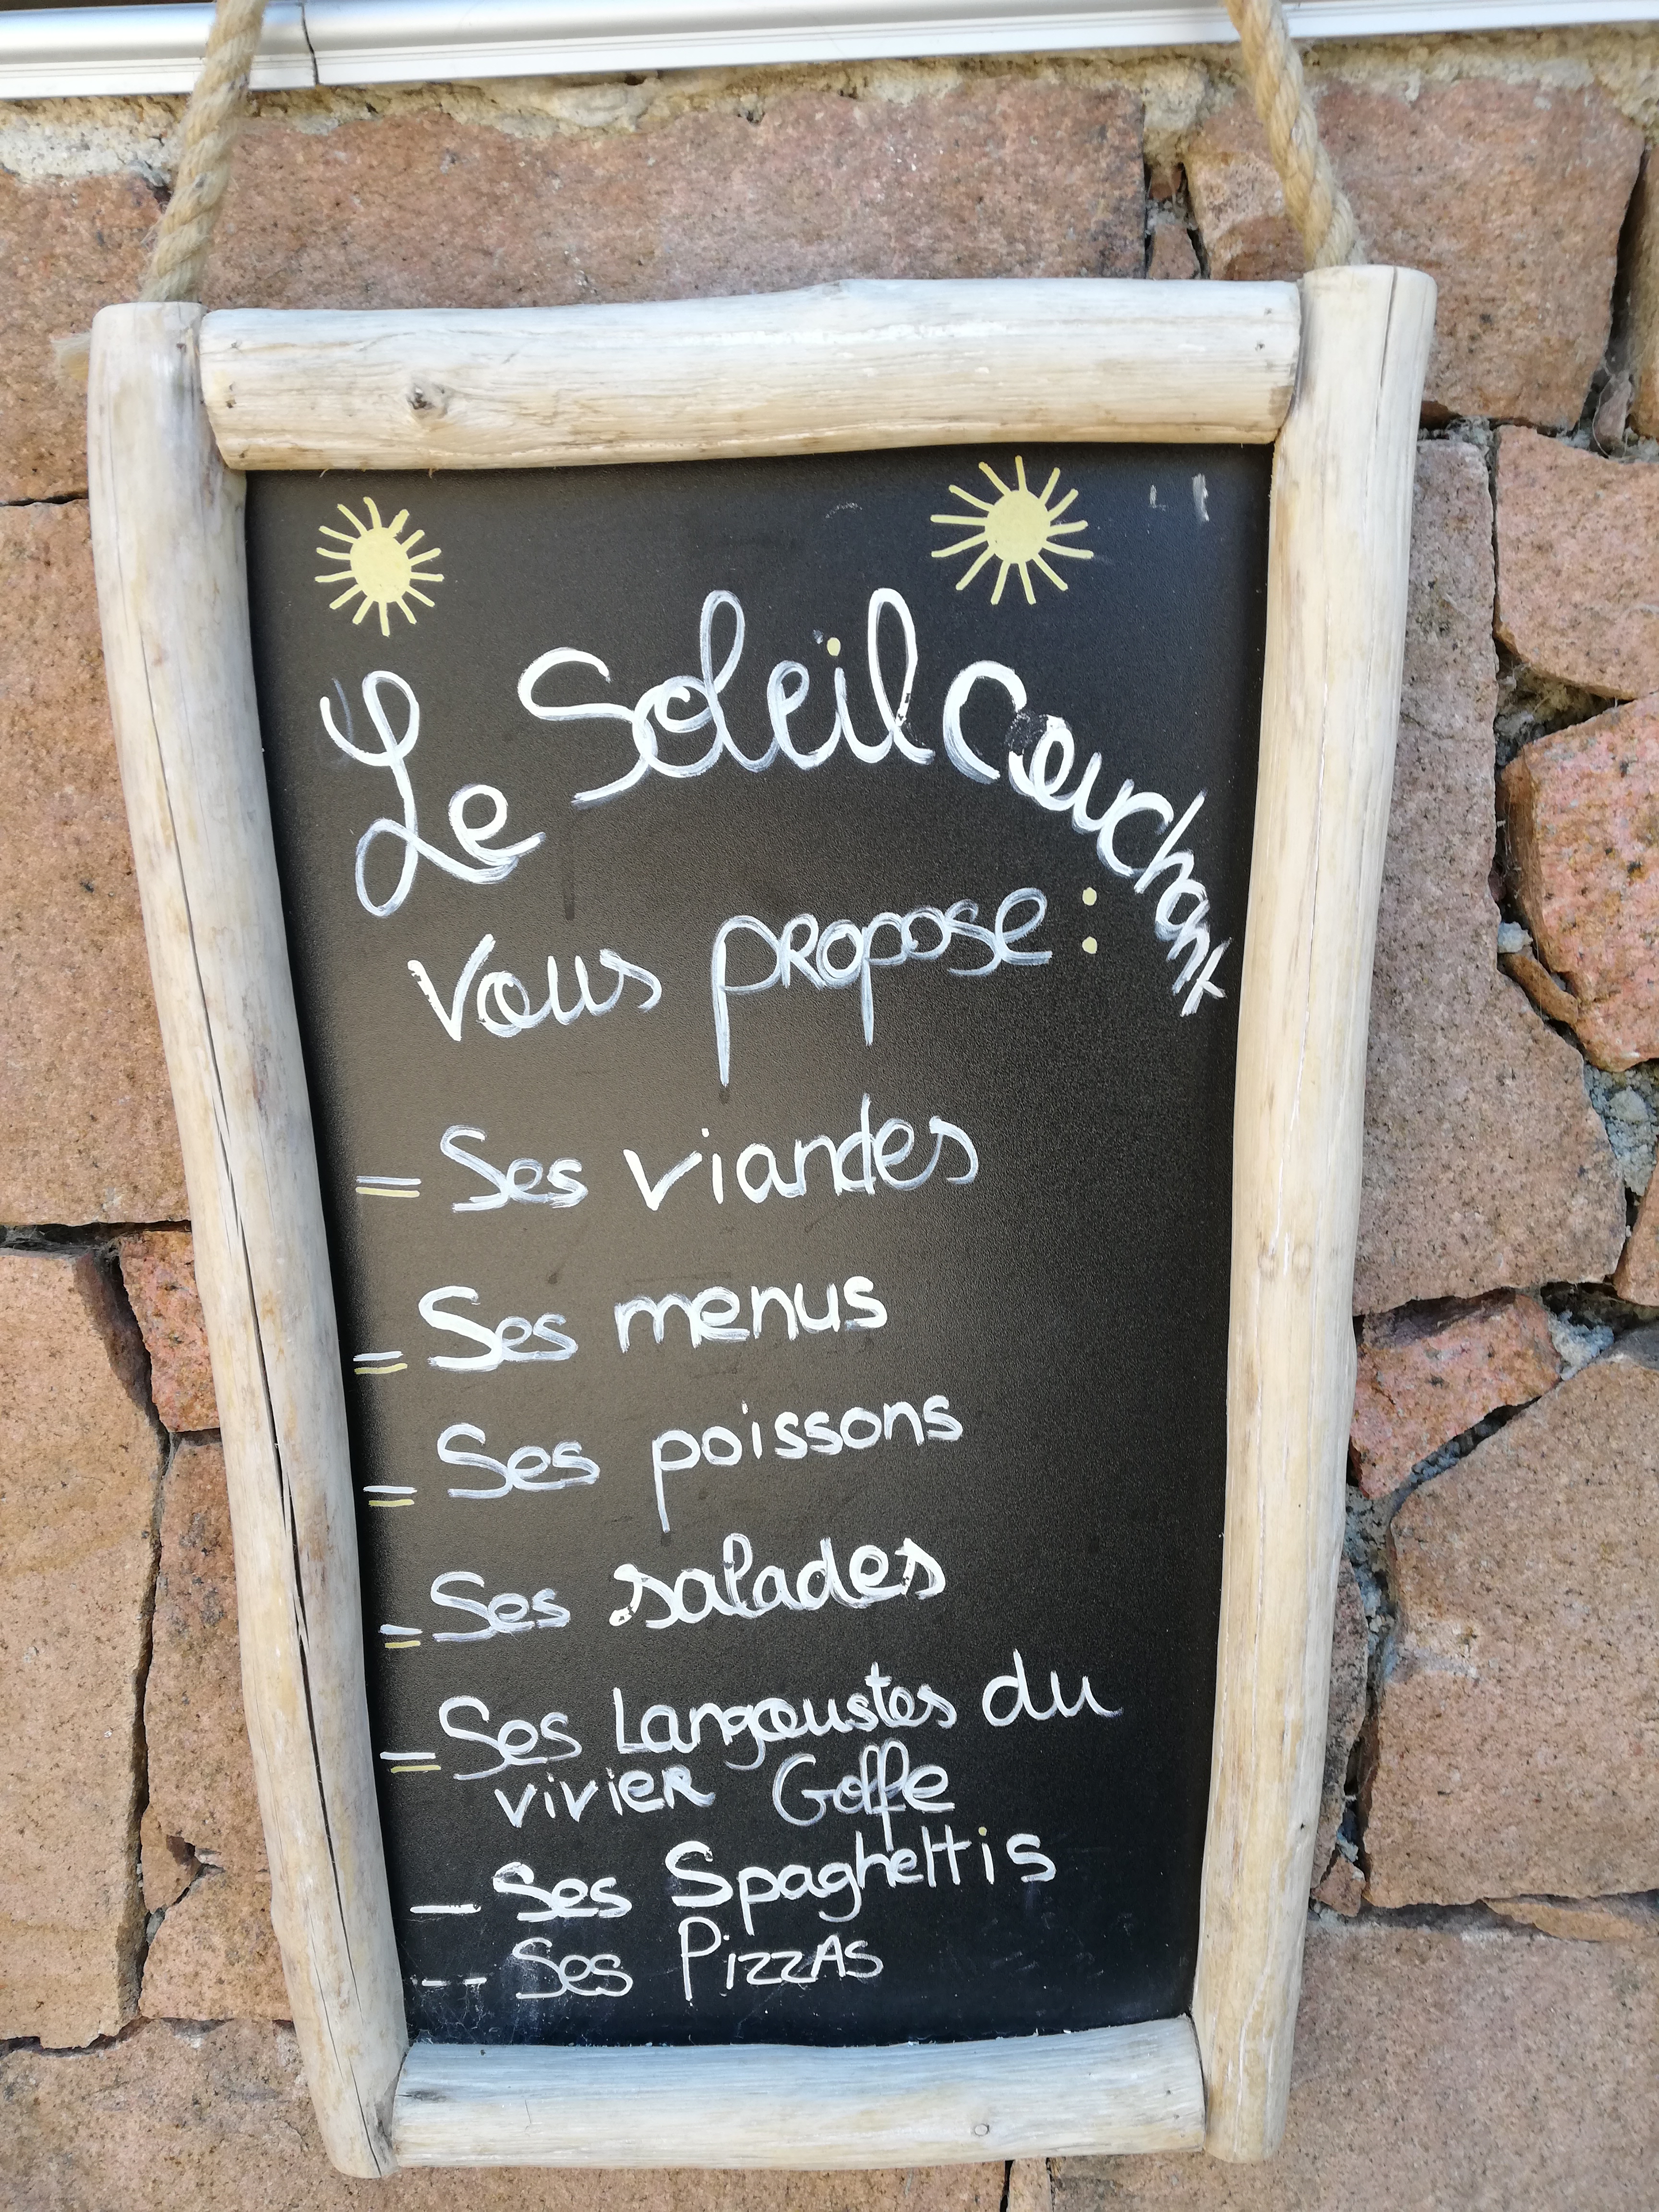 Le Soleil Couchant
Vous propose :
= Ses viandes
= Ses menus
= Ses poissons
= Ses salades
= Ses Langoustes du
vivier Golfe
_ Ses Spaghettis
-- Ses PizzAs